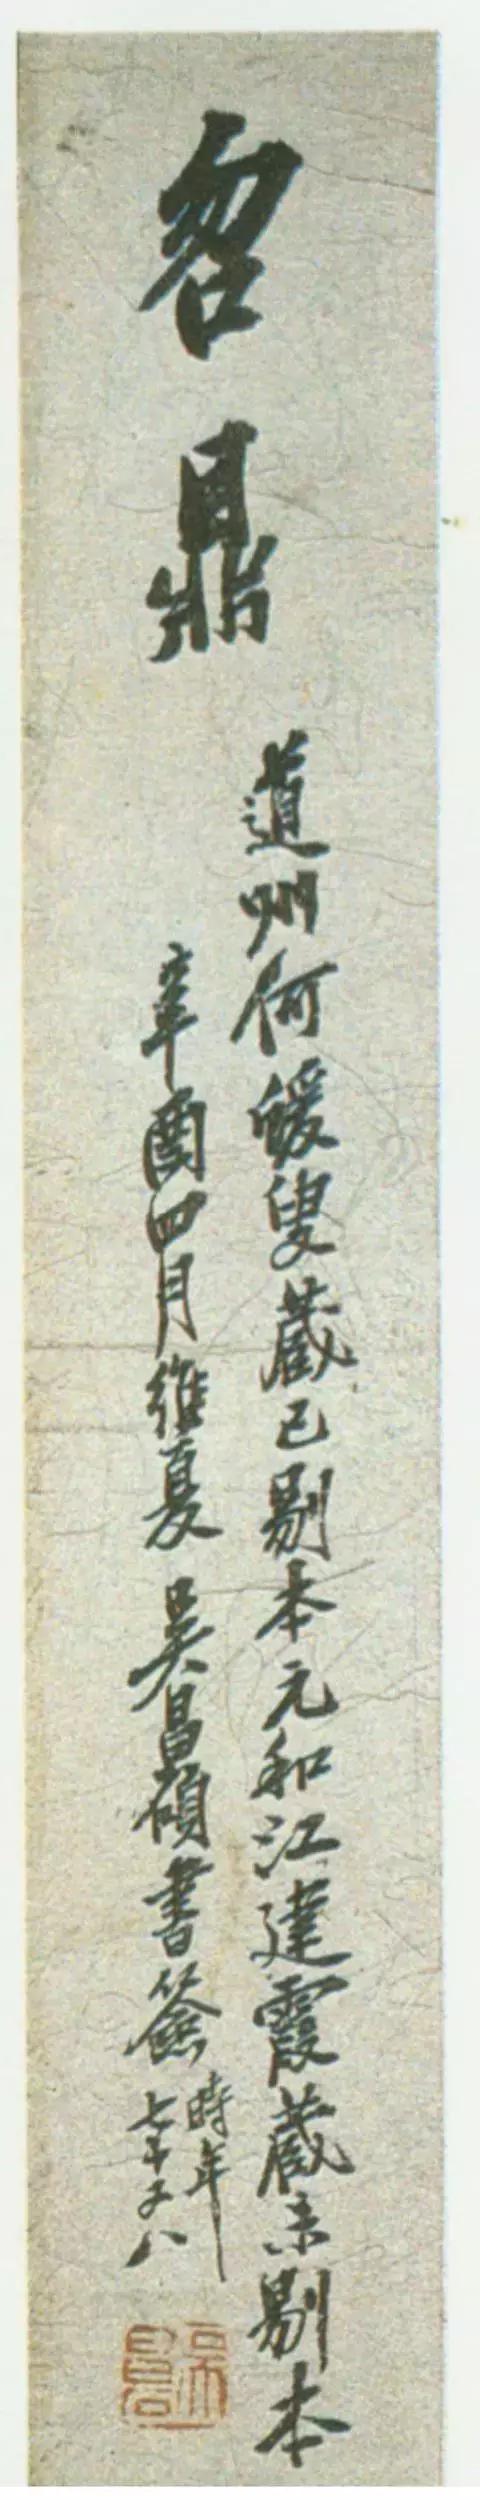 曶鼎
道州何蝯叟藏已剔本元和江建霞藏未剔本
辛酉四月維夏吳昌碩書簽
時年
七十又八